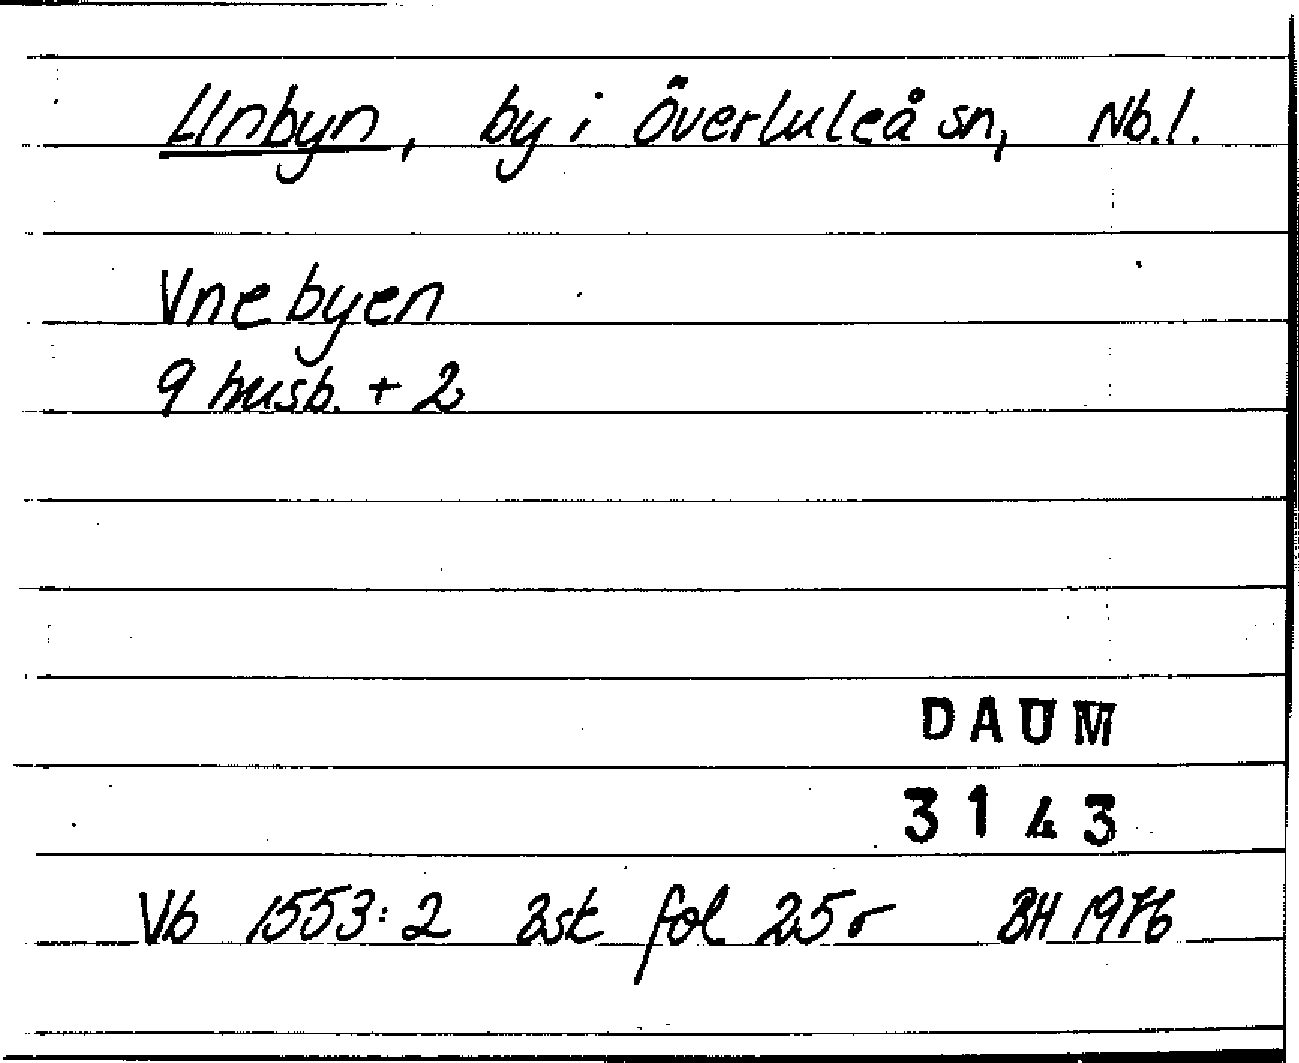 Unbyn, by i Överluleå sn, Nb.l.
Vnebyen
9 husb. + 2
DAUM
3143
Vb 1553:2 Bsk fol 25 r BH 1976